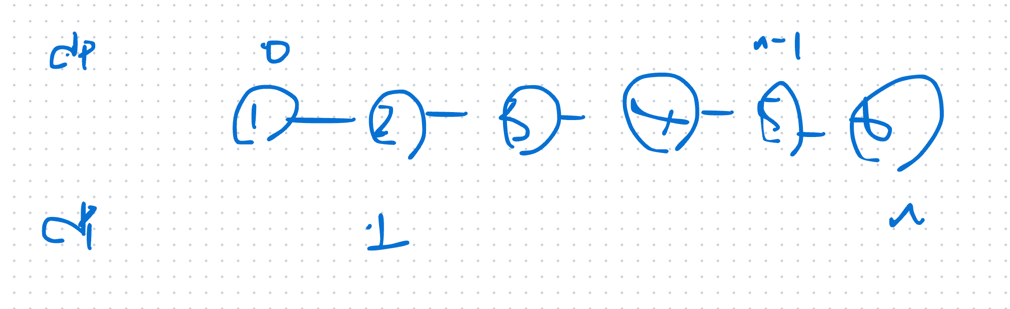 dp 0 n-1
1 2 3 4 5 6
dp 1 n